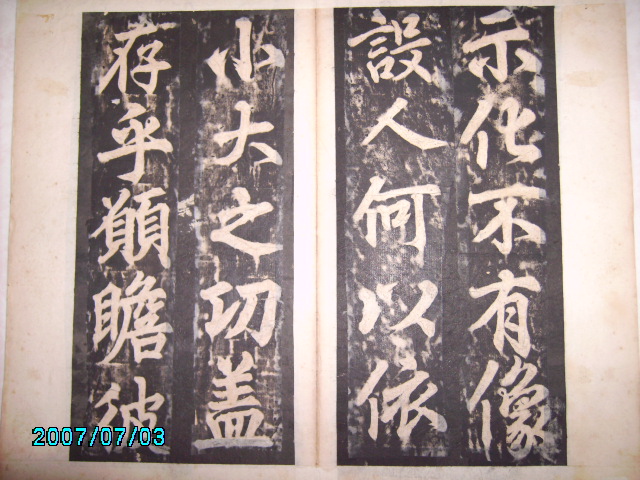 示化不有像
設人何以依
小大之功蓋
存乎願瞻彼
2007/07/03